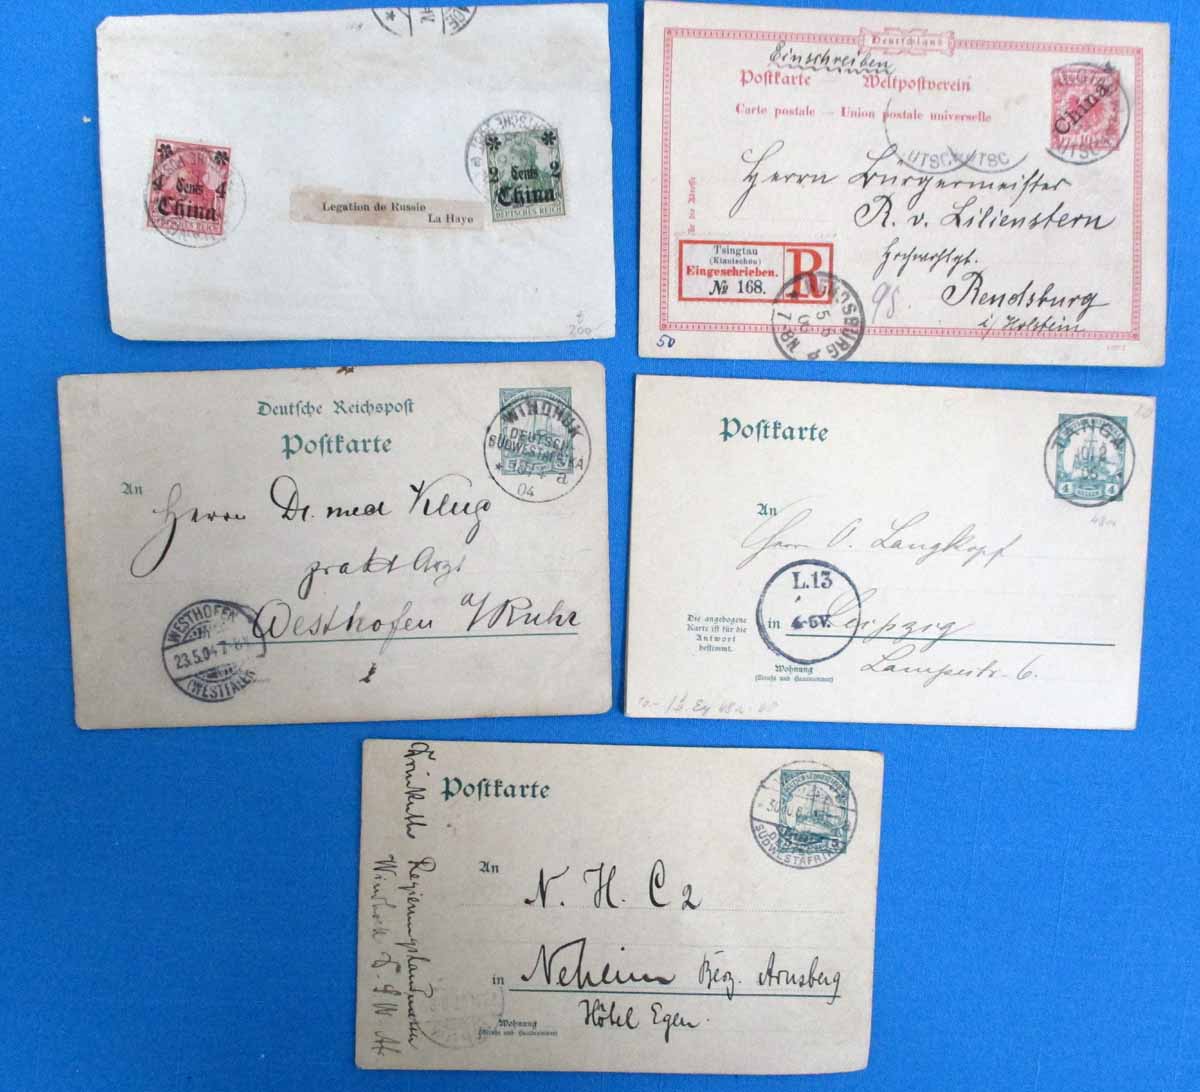 4 4
Cents
China
DEUTSCHES REICH
Legation de Russie
La Haye
2 2
Cents
China
DEUTSCHES REICH
200
Deutschland
Einschreiben
Postkarte Weltpostverein
Carte postale — Union postale universelle
China
Herrn Bürgermeister
R. v. Lilienstern
Hochwohlgb.
Rendsburg
i/ Holstein
Tsingtau
(Kiautschou)
Eingeschrieben.
№ 168.
R
98
50
Deutsche Reichspost
Postkarte
WINDHUK
DEUTSCH-
SÜDWESTAFRIKA
04
An
Herrn Dr. med Klug
prakt Arzt
Westhofen a/Ruhr
WESTHOFEN
23.5.04 7-8V.
(WESTFALEN)
Postkarte
TANGA
4
An
Herrn O. Langkopf
L.13
4-5V.
Die angebogene
Karte ist für die
Antwort
bestimmt.
in Leipzig
Wohnung
(Straße und Hausnummer)
Lampestr. 6.
Postkarte
SÜDWESTAFRIKA
An
N. H. C 2
in Neheim Bez. Arnsberg
Hôtel Egen.
Wohnung
(Straße und Hausnummer)
Windhoek D. S. W. Af.